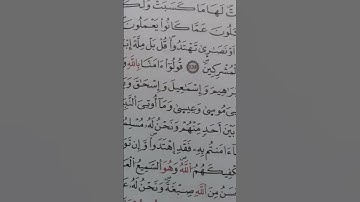 تْ لَهَا مَا كَسَبَتْ وَلَكُ
ـَٔلُونَ عَمَّا كَانُوا۟ يَعْمَلُونَ
أَوْ نَصَٰرَىٰ تَهْتَدُوا۟ قُلْ بَلْ مِلَّةَ إِ
لْمُشْرِكِينَ قُولُوٓا۟ ءَامَنَّا بِٱللَّهِ وَ
بْرَٰهِيمَ وَإِسْمَٰعِيلَ وَإِسْحَٰقَ وَ
ىَ مُوسَىٰ وَعِيسَىٰ وَمَآ أُوتِىَ ٱلنَّبِ
بَيْنَ أَحَدٍ مِّنْهُمْ وَنَحْنُ لَهُۥ مُسْلِمُ
آ ءَامَنتُم بِهِۦ فَقَدِ ٱهْتَدَوا۟ وَّإِن تَوَ
كْفِيكَهُمُ ٱللَّهُ وَهُوَ ٱلسَّمِيعُ ٱلْعَ
سَنُ مِنَ ٱللَّهِ صِبْغَةً وَنَحْنُ لَهُۥ عَ